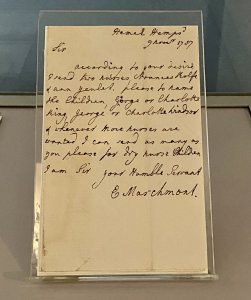 Hemel Hemps^d
9 novr 1757
Sir
according to your desire
I send two nurses Frances Rolfe
& ann
please to name
the Children, gorge or Charlotte
king, george or Charlotte windsor
& whenever more nurses are
wanted I can send as many as
you please for dry nurse Children
I am Sir your Humble Servant
E Marchmont.